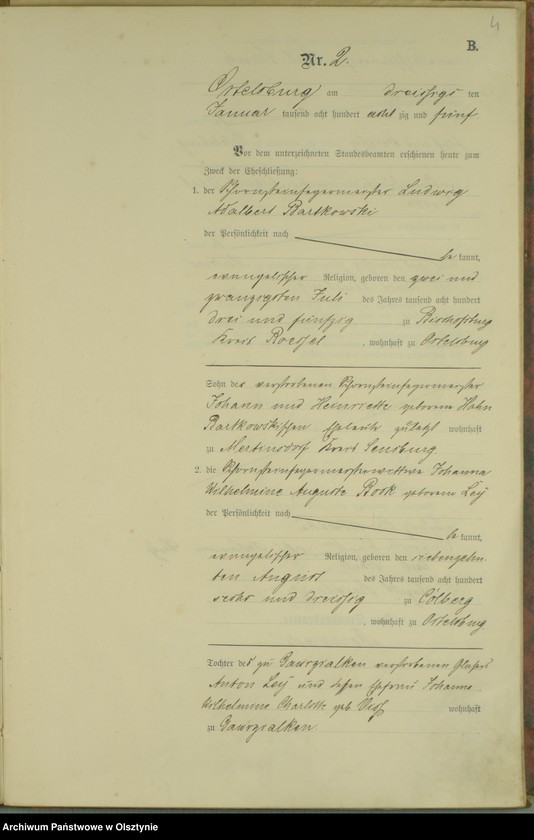 4
B.
Nr. 2.
Ortelsburg am dreißigs ten
Januar tausend acht hundert acht zig und fünf
Vor dem unterzeichneten Standesbeamten erschienen heute zum
Zweck der Eheschließung:
1. der Schornsteinfegermeister Ludwig
Adalbert Bartkowski
der Persönlichkeit nach
be kannt,
evangelischer Religion, geboren den zwei und
zwanzigsten Juli des Jahres tausend acht hundert
drei und fünfzig zu Bischofsburg
Kreis Roessel, wohnhaft zu Ortelsburg
Sohn des verstorbenen Schornsteinfegermeister
Johann und Henriette geborene Hahn
Bartkowskischen Eheleute zuletzt wohnhaft
zu Mertinsdorf Kreis Sensburg.
2. die Schornsteinfegermeisterwittwe Johanna
Wilhelmine Auguste Book geborene Ley
der Persönlichkeit nach
be kannt,
evangelischer Religion, geboren den siebenzehn-
ten August des Jahres tausend acht hundert
sechs und dreißig zu Cölberg
, wohnhaft zu Ortelsburg
Tochter des zu verstorbenen
Anton Ley und dessen Ehefrau Johanna
Wilhelmine Charlotte geb. wohnhaft
zu
Archiwum Państwowe w Olsztynie